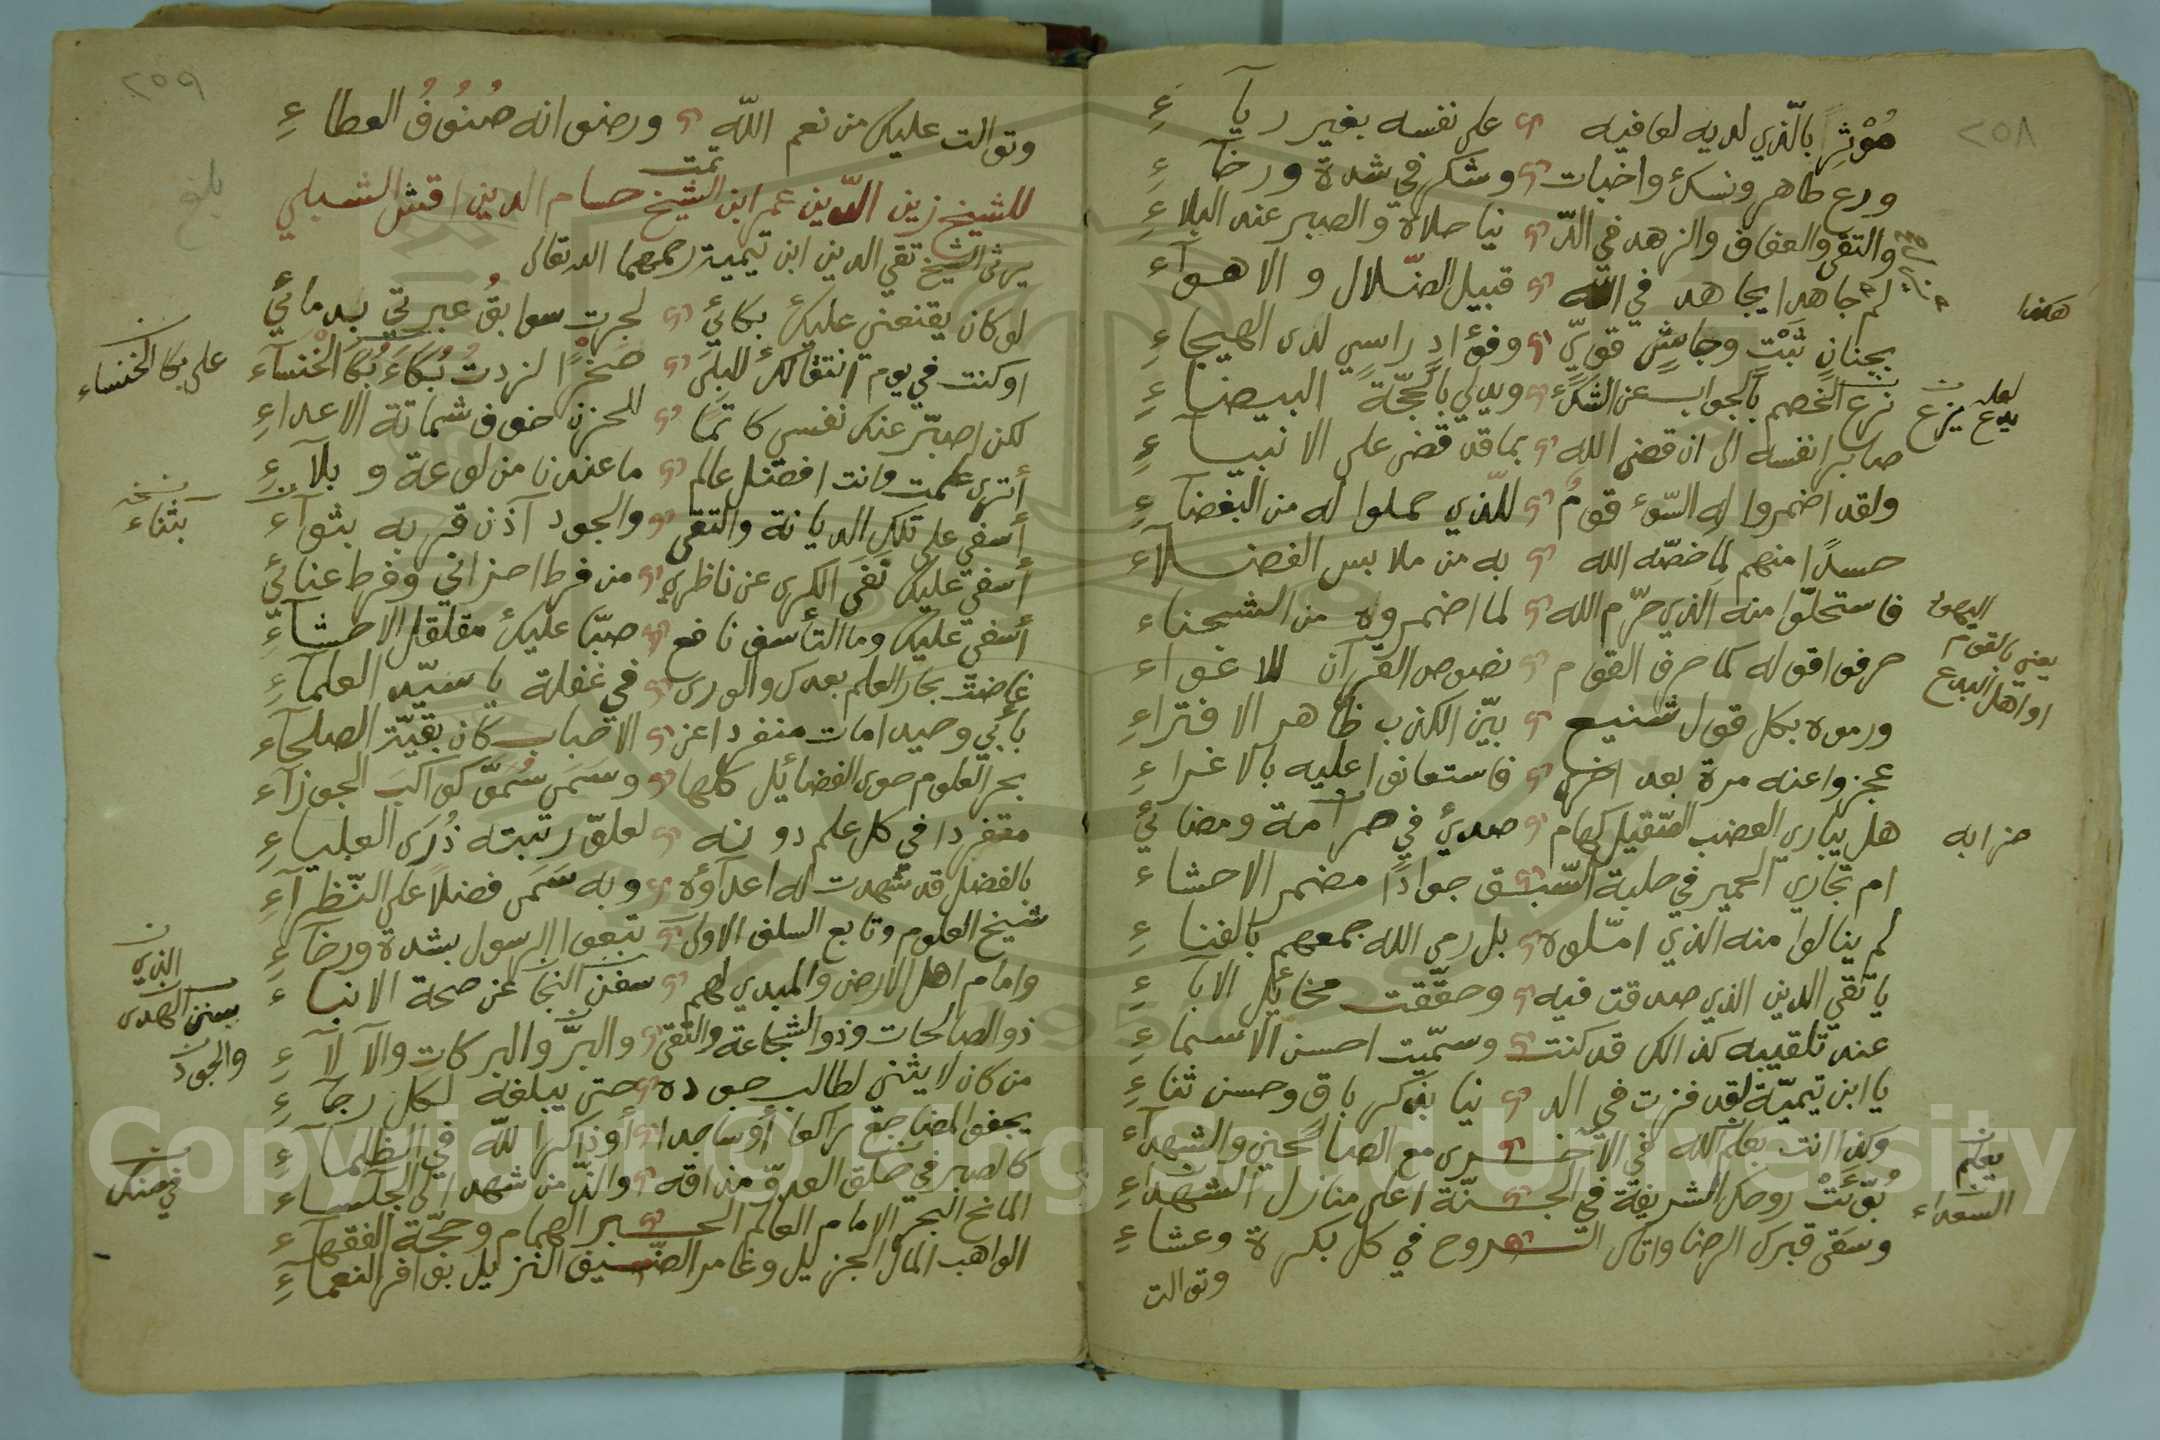 ٢٥٨
مُؤثِرٍ بالّذي لديه لعافيه على نفسه بغير ريآءِ
ورع طاهر ونسك واخبات وشكر في شدة ورخآءِ
والتقى والعفاف والزهد في الدّ نيا صلاة والصبر عند البلاءِ
لم جاهدا يجاهد في الله قبيل الضّلال والاهوآء
هكذا
بجنانٍ ثَبْتٍ وجاشٍ قويّ وفؤادٍ راسيٍ لدى الهيجاءِ
نزع الخصم بالجواب عن الشك ويدلي بالحجّة البيضاءِ
لعله يدع ينزع
صابرا نفسه الى ان قضى الله بما قد قضى على الانبيآءِ
ولقد اضمروا له السّوء قومٌ للّذي حملوا له من البغضآءِ
حسدًا منهم لما خصّه الله به من ملابس الفضلآء
فاستحلّوا منه الذي حرّم الله لما اضمروه من الشحناء
حرفوا قوله كما حرف القوم نصوص القرآن للاغواء
يعني بالقوم اليهود او اهل البدع
ورموه بكل قول شنيع بيّن الكذب ظاهر الافتراءِ
عجزوا عنه مرة بعد اخرى فاستعانوا عليه بالاغراءِ
هل يبارى العضب الثقيل كهام صدئ في صرامة ومضائي
ضرابه
ام تجاري الحمير في حلبة السّبق جوادًا مضمر الاحشاء
لم ينالوا منه الذي امّلوه بل رمى الله جمعهم بالفناءِ
يا تقي الدين الذي صدقت فيه وحقّقت مخائل الابآءِ
عند تلقيبه كذالك قد كنت وسمّيت احسن الاسماءِ
يا ابن تيميّة لقد فزت في الد نيا بذكر باق وحسن ثناءِ
وكذا انت بعلم الله في الاخرى مع الصالحين والشهدآء
يعلم
بُوّئَتْ روحك الشريفة في الجنّة اعلى منازل الشهداءِ
السعداء
وسقى قبرك الرضا واتاك الروح في كل بكرة وعشاءِ
وتوالت
٢٥٩
وتوالت عليك من نعم اللّه ورضوانه صُنُوفُ العطاءِ
تمت
بلغ
للشيخ زين الدّين عمر ابن الشيخ حسام الدين اقش الشبلي
يرثي الشيخ تقي الدين ابن تيمية رحمهما الله تعالى
لو كان يقنعني عليك بكائي لجرت سوابقُ عبرتي بدمائي
او كنت في يوم انتقالك للبلى صخرًا لزدتُ بُكاءَ بُكا الخنسآء
على بكا الخنساء
لكن اصبّر عنك نفسي كاتمًا للحزن خوف شماتة الاعداءِ
أترى علمت وانت افضل عالم ما عندنا من لوعة وبلآءِ
أسفي على تلك الديانة والتقى والجود آذن قربه بثوآء
نسخه بتناء
أسفي عليك نفى الكرى عن ناظري من فرط احزاني وفرط عنائي
أسفي عليك وما التأسف نافع صبّا عليك مقلقل الاحشاءِ
غاضت بحار العلم بعدك والورى في غفلة يا سيّد العلمآءِ
بأبي وحيدا مات منفردا عن الاحباب كان بقيّة الصلحآء
بحر العلوم حوى الفضائل كلها وسمى سُموّ كواكب الجوزآء
متفردا في كل علم دونه لعلوّ رتبته ذُرَى العلياءِ
بالفضل قد شهدت له اعدآؤه وبه سَمَى فضلاً على النّظرآءِ
شيخ العلوم وتابع السلف الاولى تبعوا الرسول بشدة ورخآءِ
وامام اهل الارض والمبدي لهم سفن النجا عن صحة الانباء
الذي بسنن الهدى
ذو الصالحات وذو الشجاعة والتقى والبرّ والبركات والآلآءِ
والجود
من كان لا يثني لطالب جوده حتى يبلغه لكل رجآءِ
يجفو المضاجع راكعا أو ساجدا أو ذاكرا للّه في الظلمآءِ
كالصبر في حلق العدوّ مذاقه والذّ من شهد الى الجلساء
في ضنك
المانح البحر الامام العالم الحبر الهمام وحجّة الفقهآءِ
الواهب المال الجزيل وغامر الضّيف النزيل بوافر النعمآءِ
Copyright © King Saud University